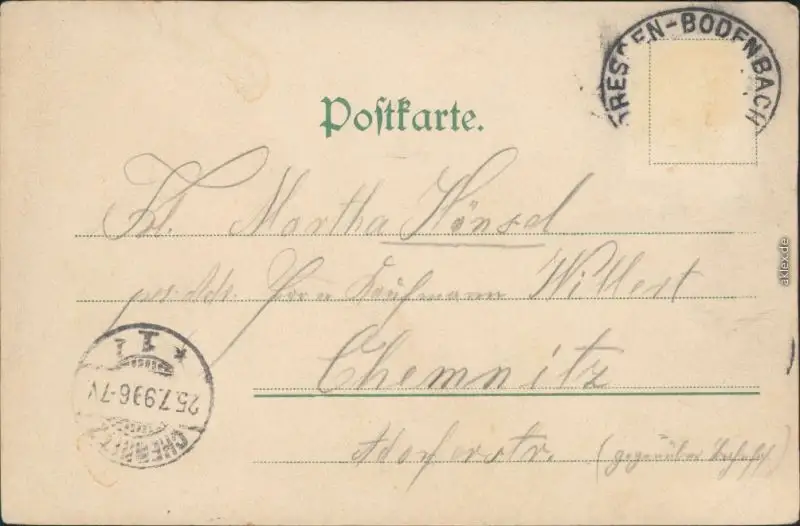 DRESDEN-BODENBACH
Postkarte.
Frl. Martha Hänsel
per Adr. Herrn Kaufmann Willert
Chemnitz
Adorferstr. (gegenüber
CHEMNITZ
25.7.99 6-7 V
* 1
akpool.de